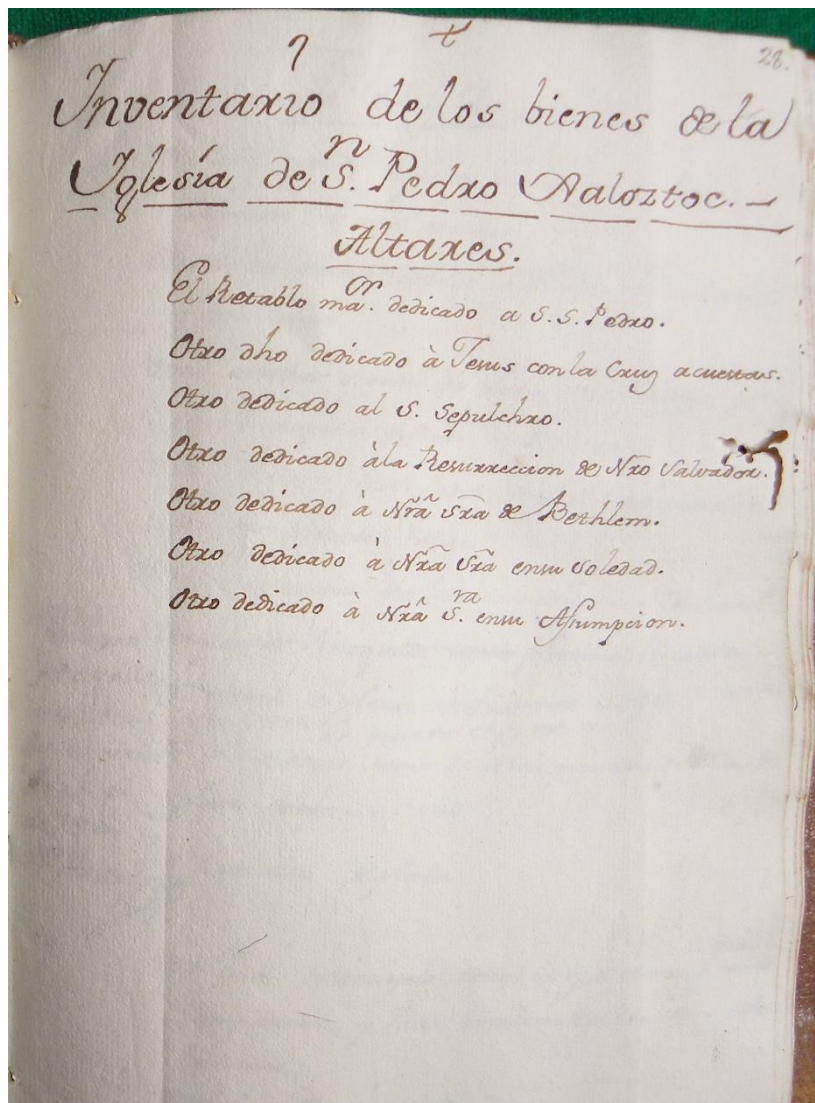 28.
Inventario de los bienes de la
Iglesia de S.n Pedro Xaloztoc.
Altares.
El Retablo ma.or dedicado a S. S. Pedro.
Otro dho dedicado à Jesus con la Cruz acuestas.
Otro dedicado al S. Sepulchro.
Otro dedicado àla Resurreccion de Nro Salvador.
Otro dedicado à Nrã Sra de Bethlem.
Otro dedicado à Nra Sra ensu Soledad.
Otro dedicado à Nrâ S.ra ensu Assumpcion.